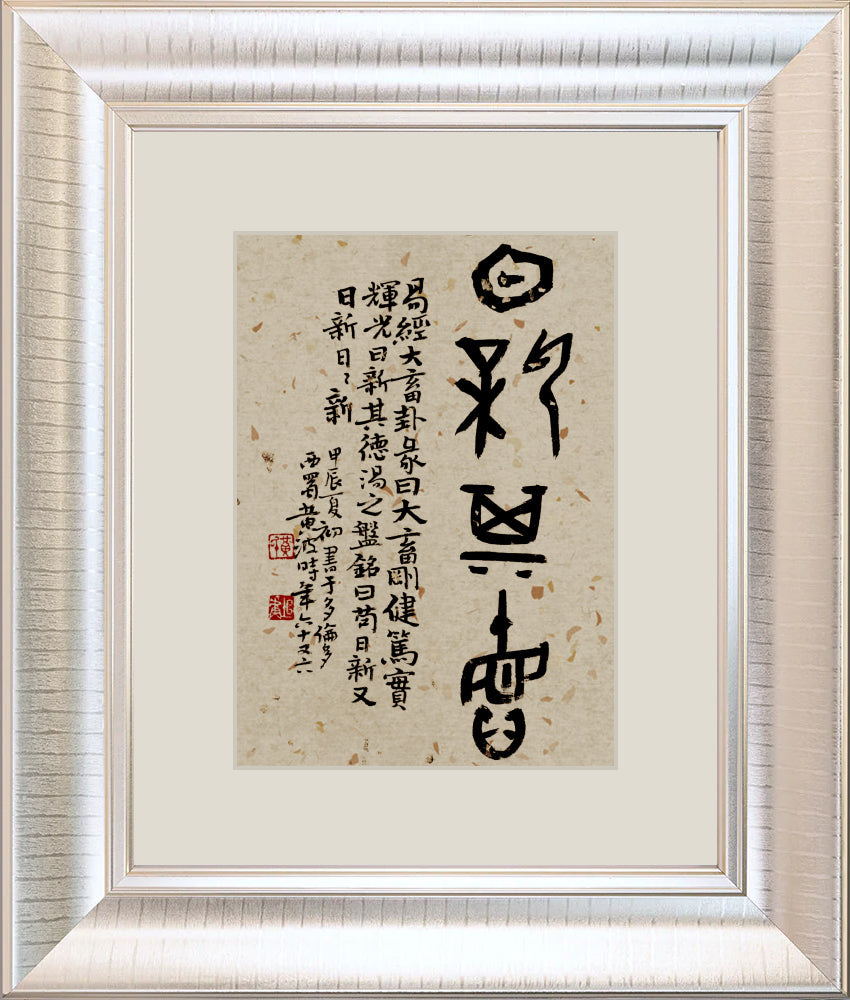 日新其惪
易經大畜卦彖曰大畜剛健篤實
輝光日新其德湯之盤銘曰苟日新又
日新日日新
甲辰夏初書于多倫多
西蜀黄波時年六十又六